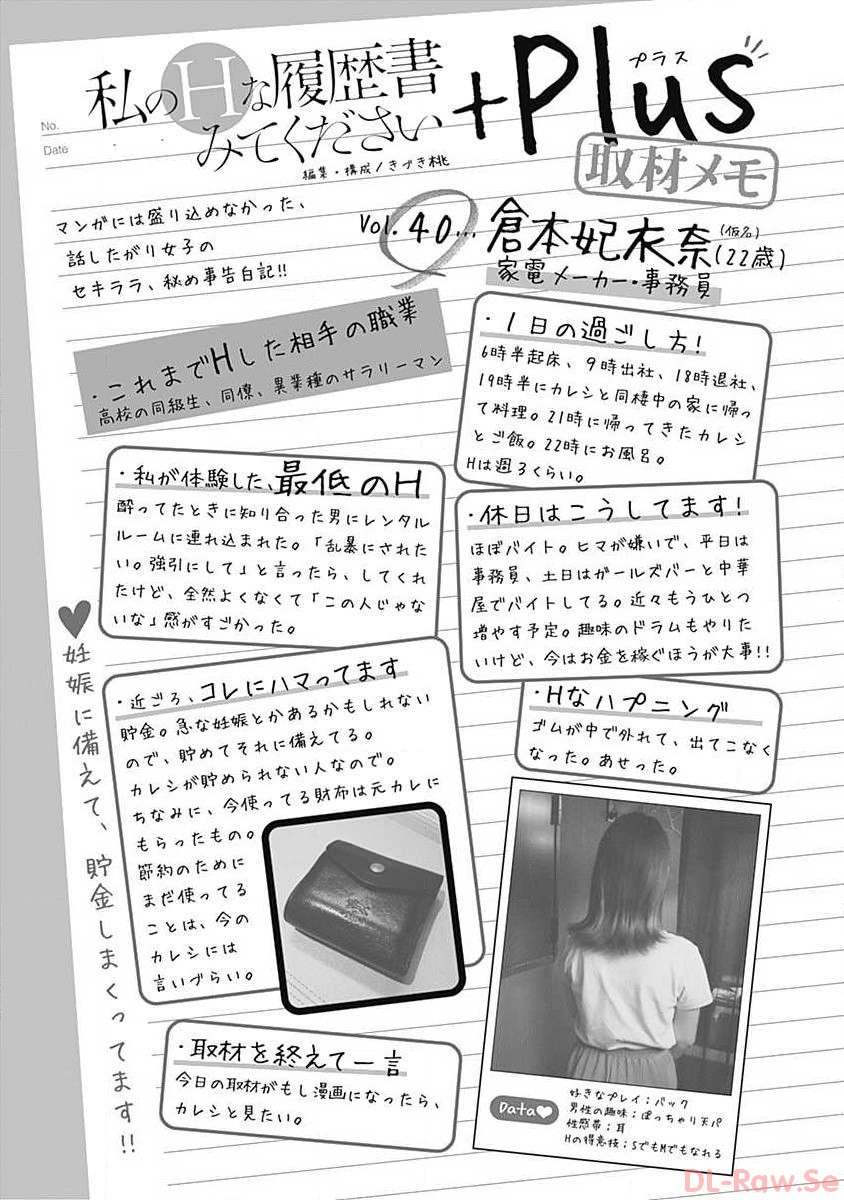 No.
Date
私のHな履歴書
みてください
+Plus
プラス
編集・構成/きづき桃
取材メモ
マンガには盛り込めなかった、
話したがり女子の
セキララ、秘め事告白記!!
Vol. 40...
倉本妃衣奈(仮名)(22歳)
家電メーカー・事務員
・これまでHした相手の職業
高校の同級生、同僚、異業種のサラリーマン
・1日の過ごし方!
6時半起床、9時出社、18時退社、
19時半にカレシと同棲中の家に帰っ
て料理。21時に帰ってきたカレシ
とご飯。22時にお風呂。
Hは週3くらい。
・私が体験した、最低のH
酔ってたときに知り合った男にレンタル
ルームに連れ込まれた。「乱暴にされた
い。強引にして」と言ったら、してくれ
たけど、全然よくなくて「この人じゃな
いな」感がすごかった。
・休日はこうしてます!
ほぼバイト。ヒマが嫌いで、平日は
事務員、土日はガールズバーと中華
屋でバイトしてる。近々もうひとつ
増やす予定。趣味のドラムもやりた
いけど、今はお金を稼ぐほうが大事!!
・近ごろ、コレにハマってます
貯金。急な妊娠とかあるかもしれない
ので、貯めてそれに備えてる。
カレシが貯められない人なので。
ちなみに、今使ってる財布は元カレに
もらったもの。
節約のために
まだ使ってる
ことは、今の
カレシには
言いづらい。
・Hなハプニング
ゴムが中で外れて、出てこなく
なった。あせった。
♥妊娠に備えて、貯金しまくってます!!
・取材を終えて一言
今日の取材がもし漫画になったら、
カレシと見たい。
Data♥
好きなプレイ;バック
男性の趣味;ぽっちゃり天パ
性感帯;耳
Hの得意技;SでもMでもなれる
DL-Raw.Se